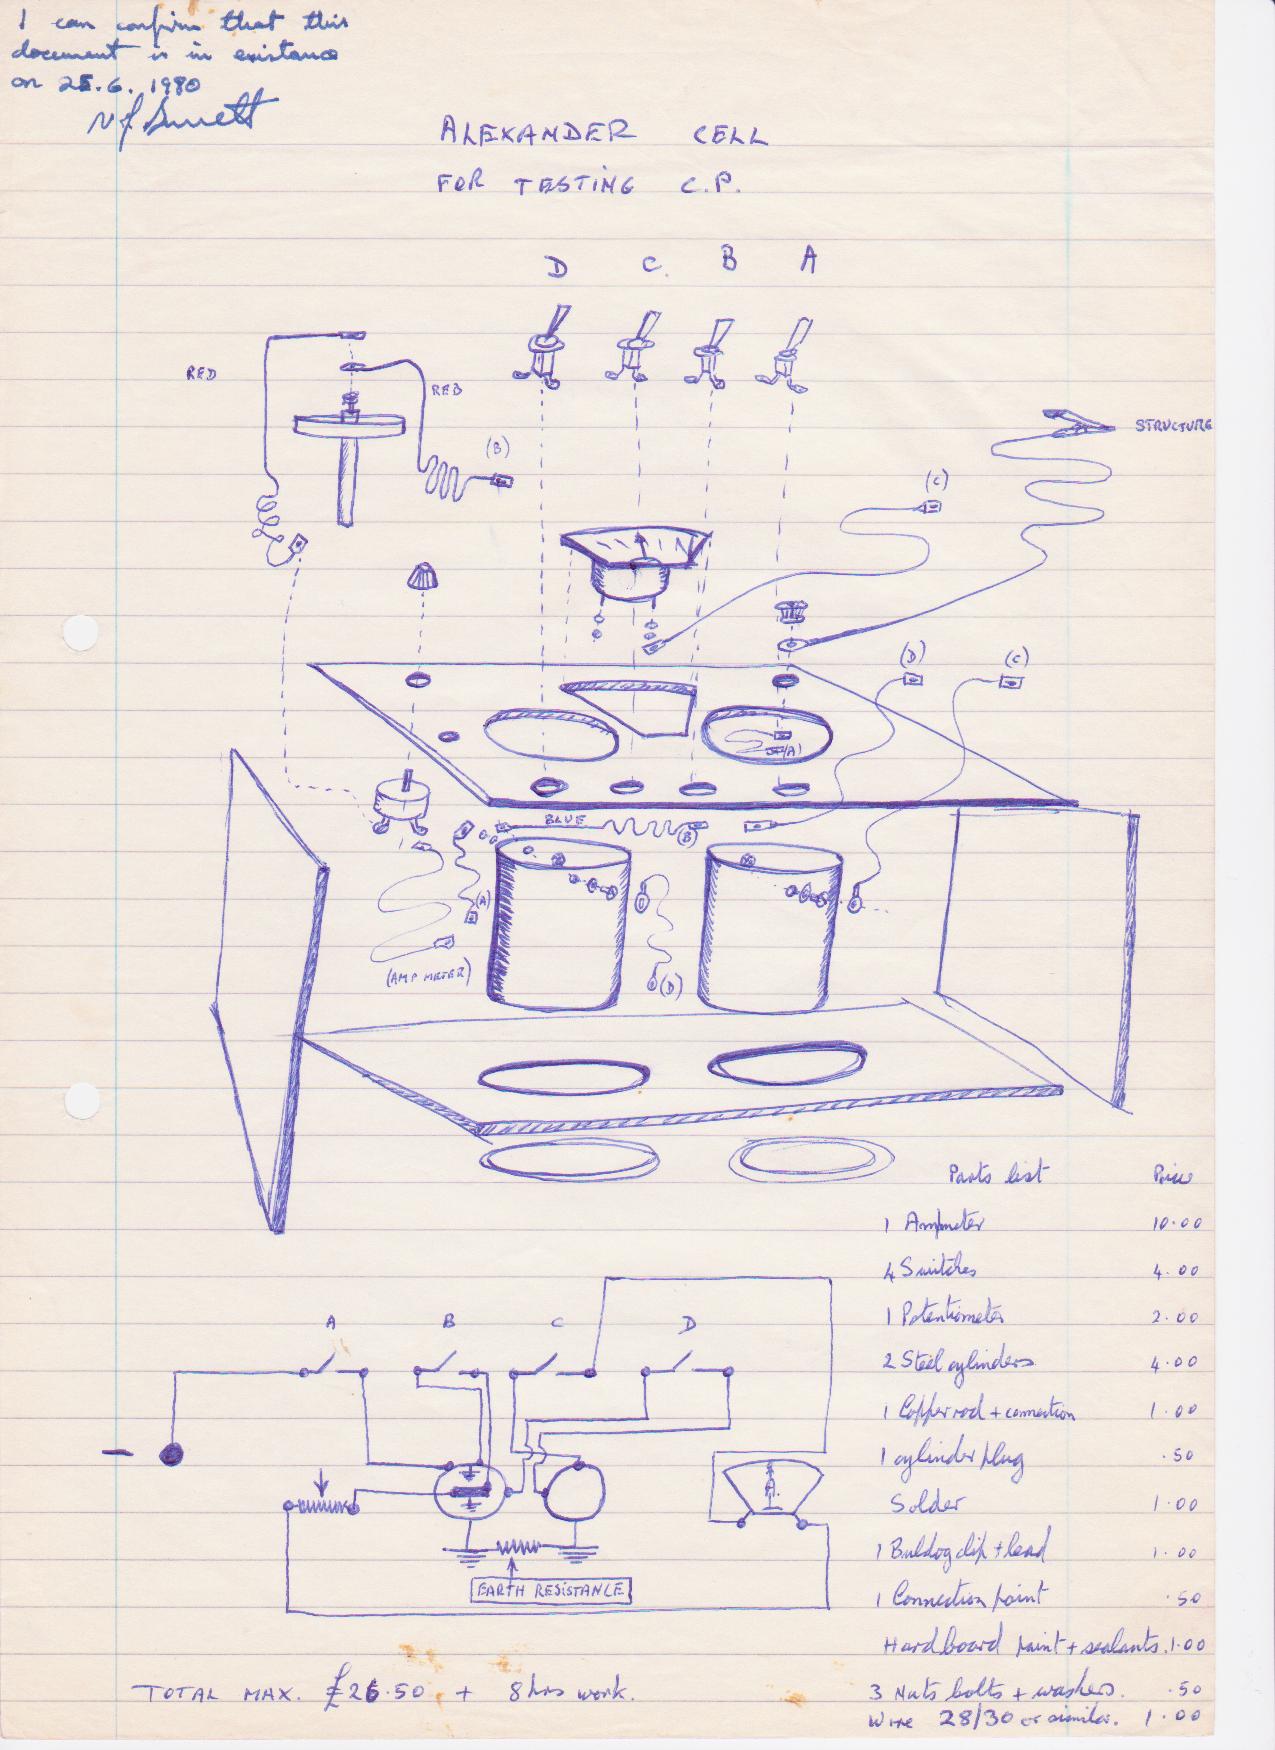 I can confirm that this
document is in existance
on 25.6.1980
ALEXANDER CELL
FOR TESTING C.P.
D C. B A
RED
RED
(B)
STRUCTURE
(C)
(D) (C)
(A)
BLUE
(B)
(A)
(AMP METER)
(D)
Parts list Price
1 Ampmeter 10.00
4 Switches 4.00
1 Potentiometer 2.00
2 Steel cylinders 4.00
1 Copper rod + connection 1.00
1 cylinder plug .50
Solder 1.00
1 Buldog clip + lead 1.00
1 Connection point .50
Hardboard paint + sealants. 1.00
3 Nuts bolts + washers. .50
Wire 28/30 or similar. 1.00
A B C D
-
A.
EARTH RESISTANCE
TOTAL MAX. £26.50 + 8 hrs work.